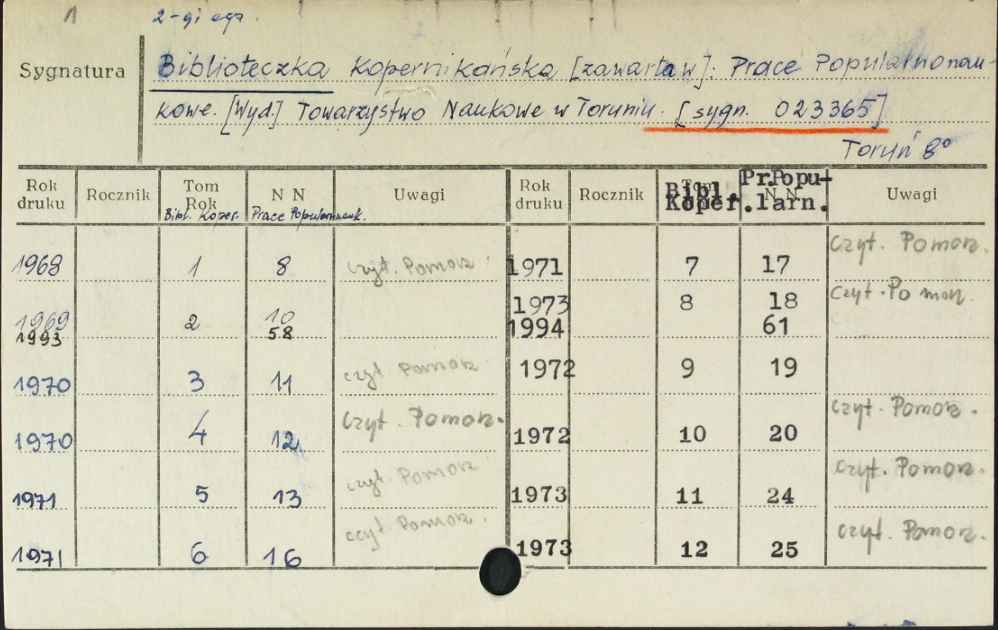 1 2-gi egz.
Sygnatura
Biblioteczka Kopernikańska [zawarta w]: Prace Popularnonau-
kowe. [Wyd.] Towarzystwo Naukowe w Toruniu. [sygn. 023365]
Toruń 8°
Rok druku Rocznik Tom Rok N N Uwagi Rok druku Rocznik Bibl. Koper. Pr.Popu-larn. Uwagi
Bibl. Koper. Prace Popularnonauk.
1968 1 8 czyt. Pomorz. 1971 7 17 Czyt. Pomorz.
1969 2 10 1973 8 18 Czyt. Pomorz.
1993 58 1994 61
1970 3 11 czyt Pomorz 1972 9 19
1970 4 12 Czyt. Pomorz. 1972 10 20 czyt. Pomorz.
1971 5 13 czyt. Pomorz 1973 11 24 czyt. Pomorz.
1971 6 16 czyt Pomorz. 1973 12 25 czyt. Pomorz.